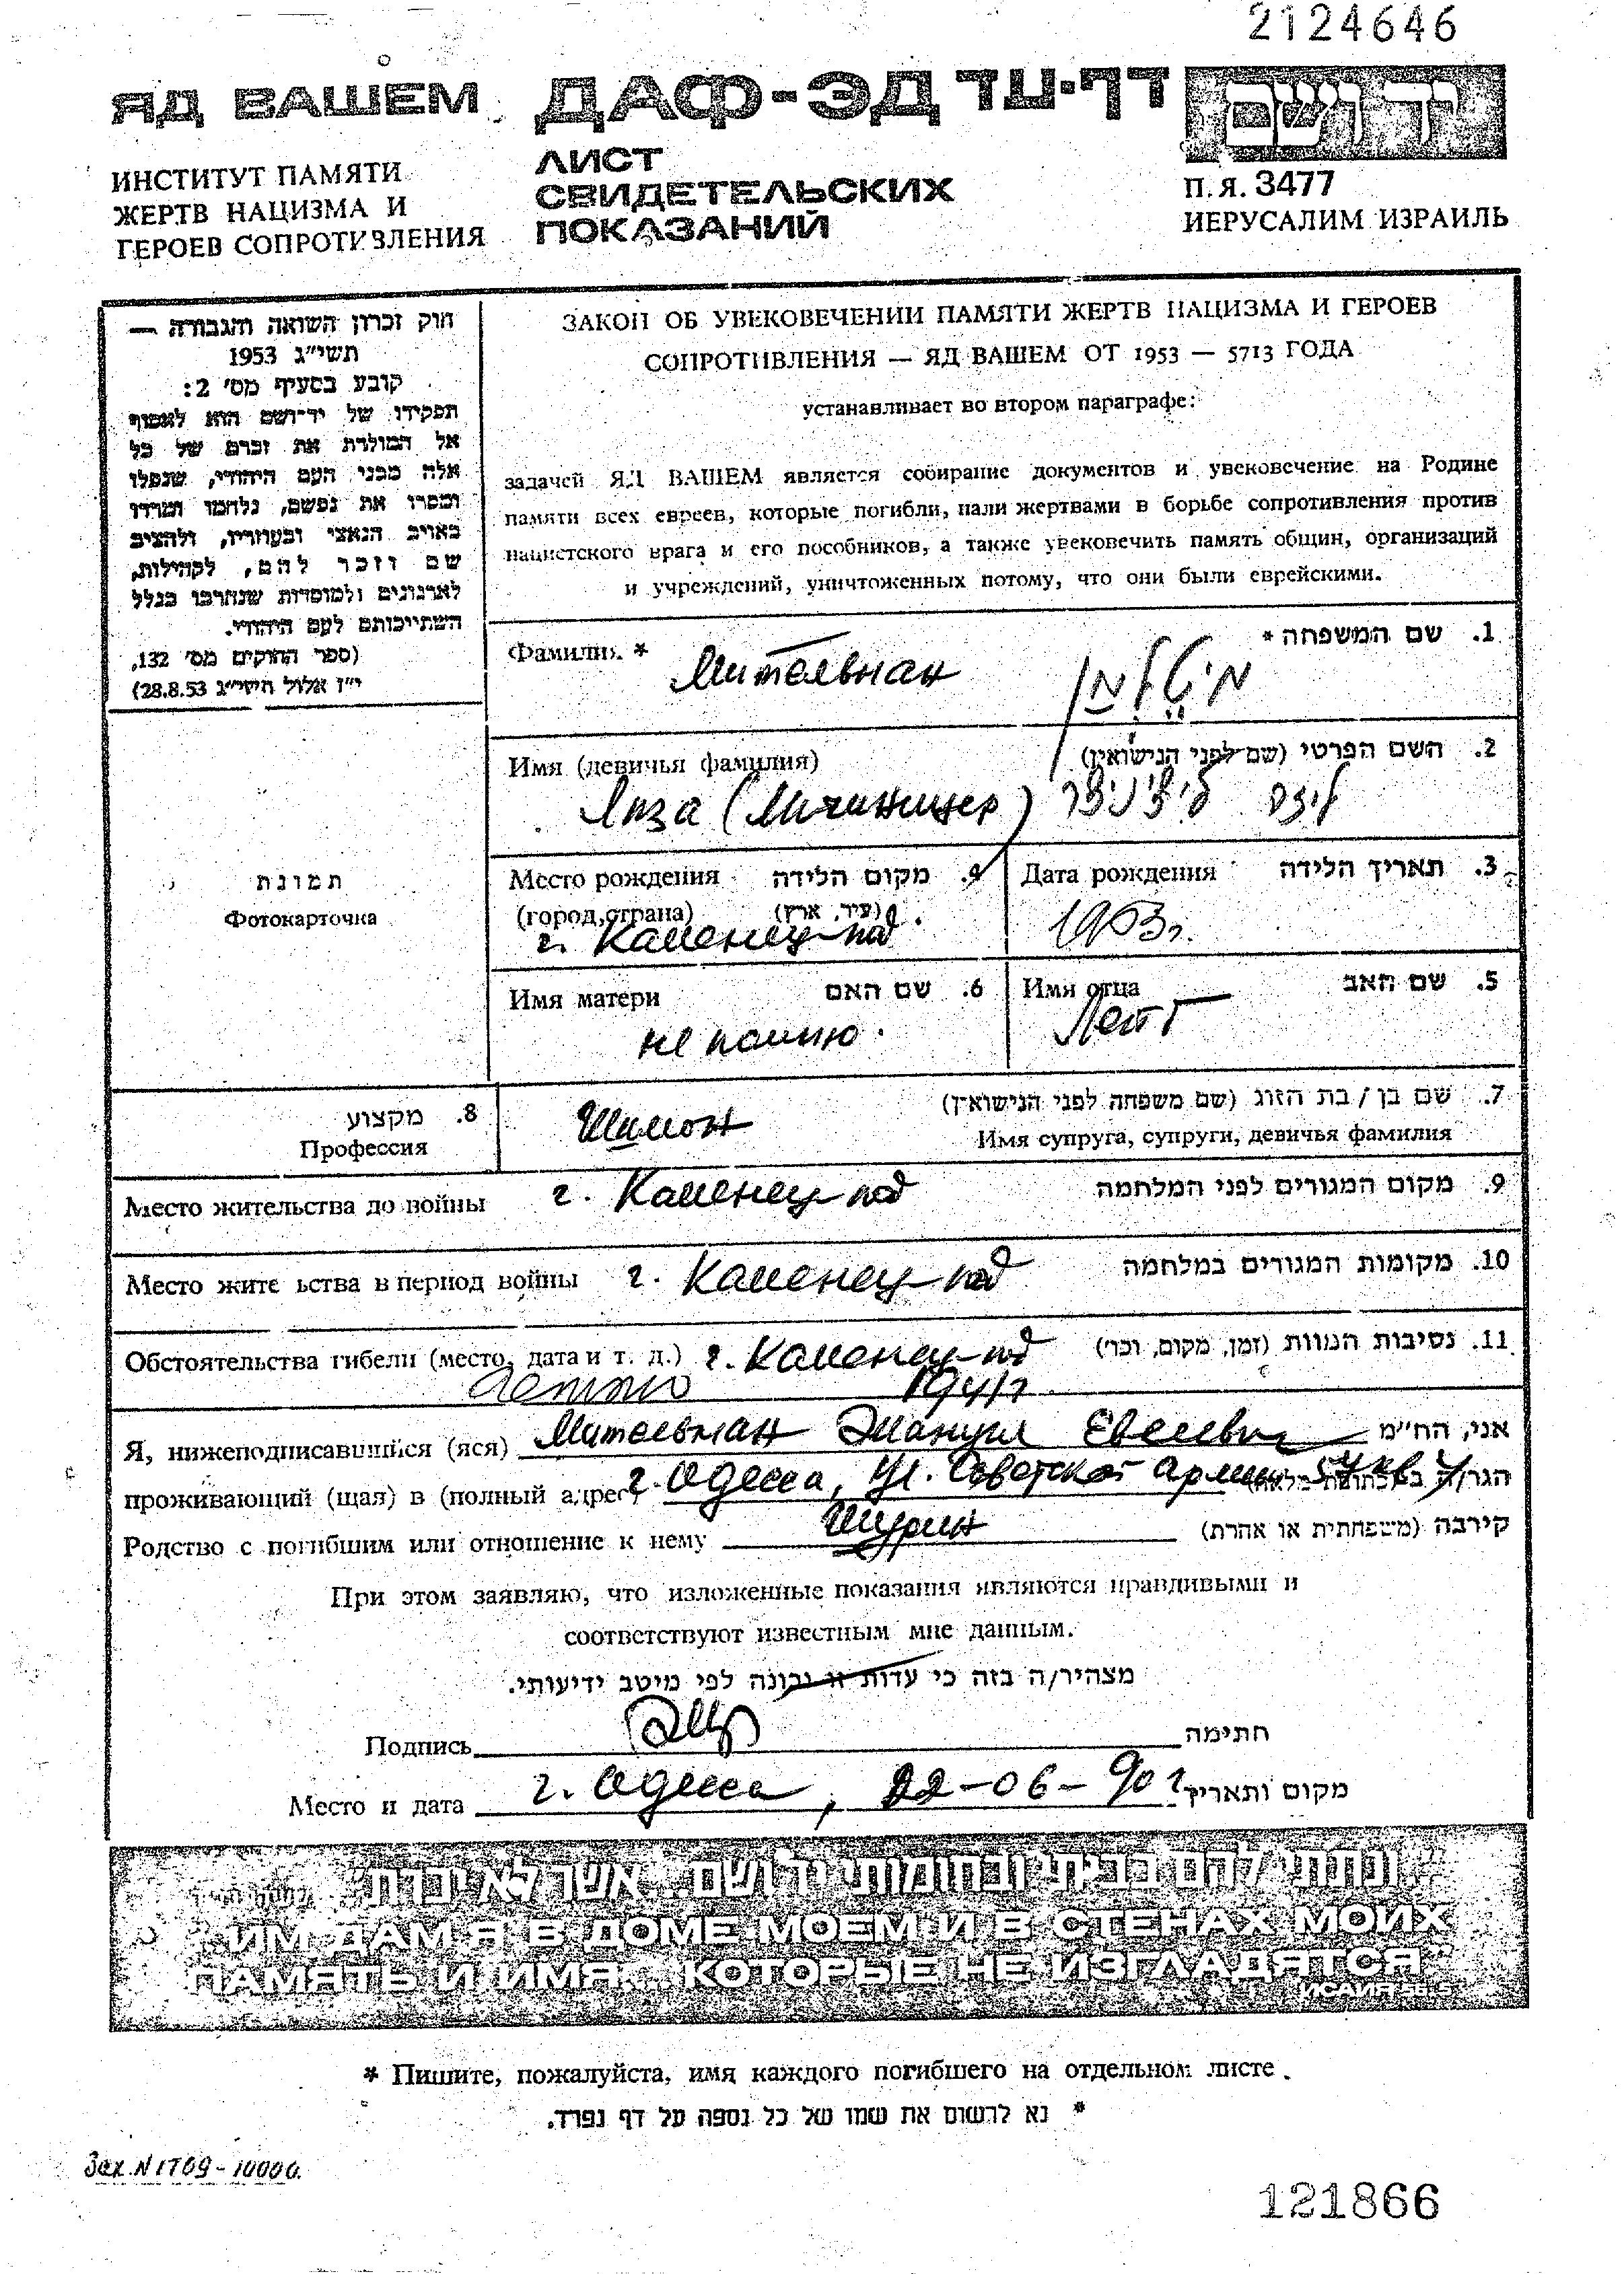 2124646
ЯД ВАШЕМ
ДАФ-ЭД דף-עד
יד ושם
ИНСТИТУТ ПАМЯТИ
ЖЕРТВ НАЦИЗМА И
ГЕРОЕВ СОПРОТИВЛЕНИЯ
ЛИСТ
СВИДЕТЕЛЬСКИХ
ПОКАЗАНИЙ
П.Я. 3477
ИЕРУСАЛИМ ИЗРАИЛЬ
חוק זכרון השואה והגבורה —
תשי״ג 1953
קובע בסעיף מס׳ 2:
תפקידו של יד־ושם הוא לאסוף
אל המולדת את זכרם של כל
אלה מבני העם היהודי, שנפלו
ומסרו את נפשם, נלחמו ומרדו
באויב הנאצי ובעוזריו, ולהציב
שם וזכר להם, לקהילות,
לארגונים ולמוסדות שנחרבו בגלל
השתייכותם לעם היהודי.
(ספר החוקים מס׳ 132,
י״ז אלול תשי״ג 28.8.53)
ЗАКОН ОБ УВЕКОВЕЧЕНИИ ПАМЯТИ ЖЕРТВ НАЦИЗМА И ГЕРОЕВ
СОПРОТИВЛЕНИЯ — ЯД ВАШЕМ ОТ 1953 — 5713 ГОДА
устанавливает во втором параграфе:
задачей ЯД ВАШЕМ является собирание документов и увековечение на Родине
памяти всех евреев, которые погибли, пали жертвами в борьбе сопротивления против
нацистского врага и его пособников, а также увековечить память общин, организаций
и учреждений, уничтоженных потому, что они были еврейскими.
Фамилия * 1. שם המשפחה *
Мительман מיטלמן
Имя (девичья фамилия) 2. השם הפרטי (שם לפני הנישואין)
Лиза ליזה
תמונת
Фотокарточка
Место рождения 4. מקום הלידה
(город, страна) (עיר, ארץ)
г. Каменец-под
Дата рождения 3. תאריך הלידה
1903г.
Имя матери 6. שם האם
не помню.
Имя отца 5. שם האב
8. מקצוע
Профессия
Шимон
7. שם בן / בת הזוג (שם משפחה לפני הנישואין)
Имя супруга, супруги, девичья фамилия
Место жительства до войны г. Каменец-под 9. מקום המגורים לפני המלחמה
Место жите ьства в период войны г. Каменец-под 10. מקומות המגורים במלחמה
Обстоятельства гибели (место, дата и т. д.) г. Каменец-под 11. נסיבות המוות (זמן, מקום, וכו׳)
летто 1941г
Я, нижеподписавшийся (яся) Мительман Эмануил Евелевич אני, הח״מ
проживающий (щая) в (полный адрес) г. Одесса, ул. Советской армии
Родство с погибшим или отношение к нему Шурин קירבה (משפחתית או אחרת)
При этом заявляю, что изложенные показания являются правдивыми и
соответствуют известным мне данным.
מצהיר/ה בזה כי עדות זו נכונה לפי מיטב ידיעותי.
Подпись חתימה
Место и дата г. Одесса, 22-06-90г. מקום ותאריך
״ונתתי להם בביתי ובחומותי יד ושם... אשר לא יכרת״
"ИМ ДАМ Я В ДОМЕ МОЕМ И В СТЕНАХ МОИХ
ПАМЯТЬ И ИМЯ... КОТОРЫЕ НЕ ИЗГЛАДЯТСЯ"
ИСАИЯ 56.5
* Пишите, пожалуйста, имя каждого погибшего на отдельном листе.
* נא לרשום את שמו של כל נספה על דף נפרד.
Зак. N 1709-10000.
121866